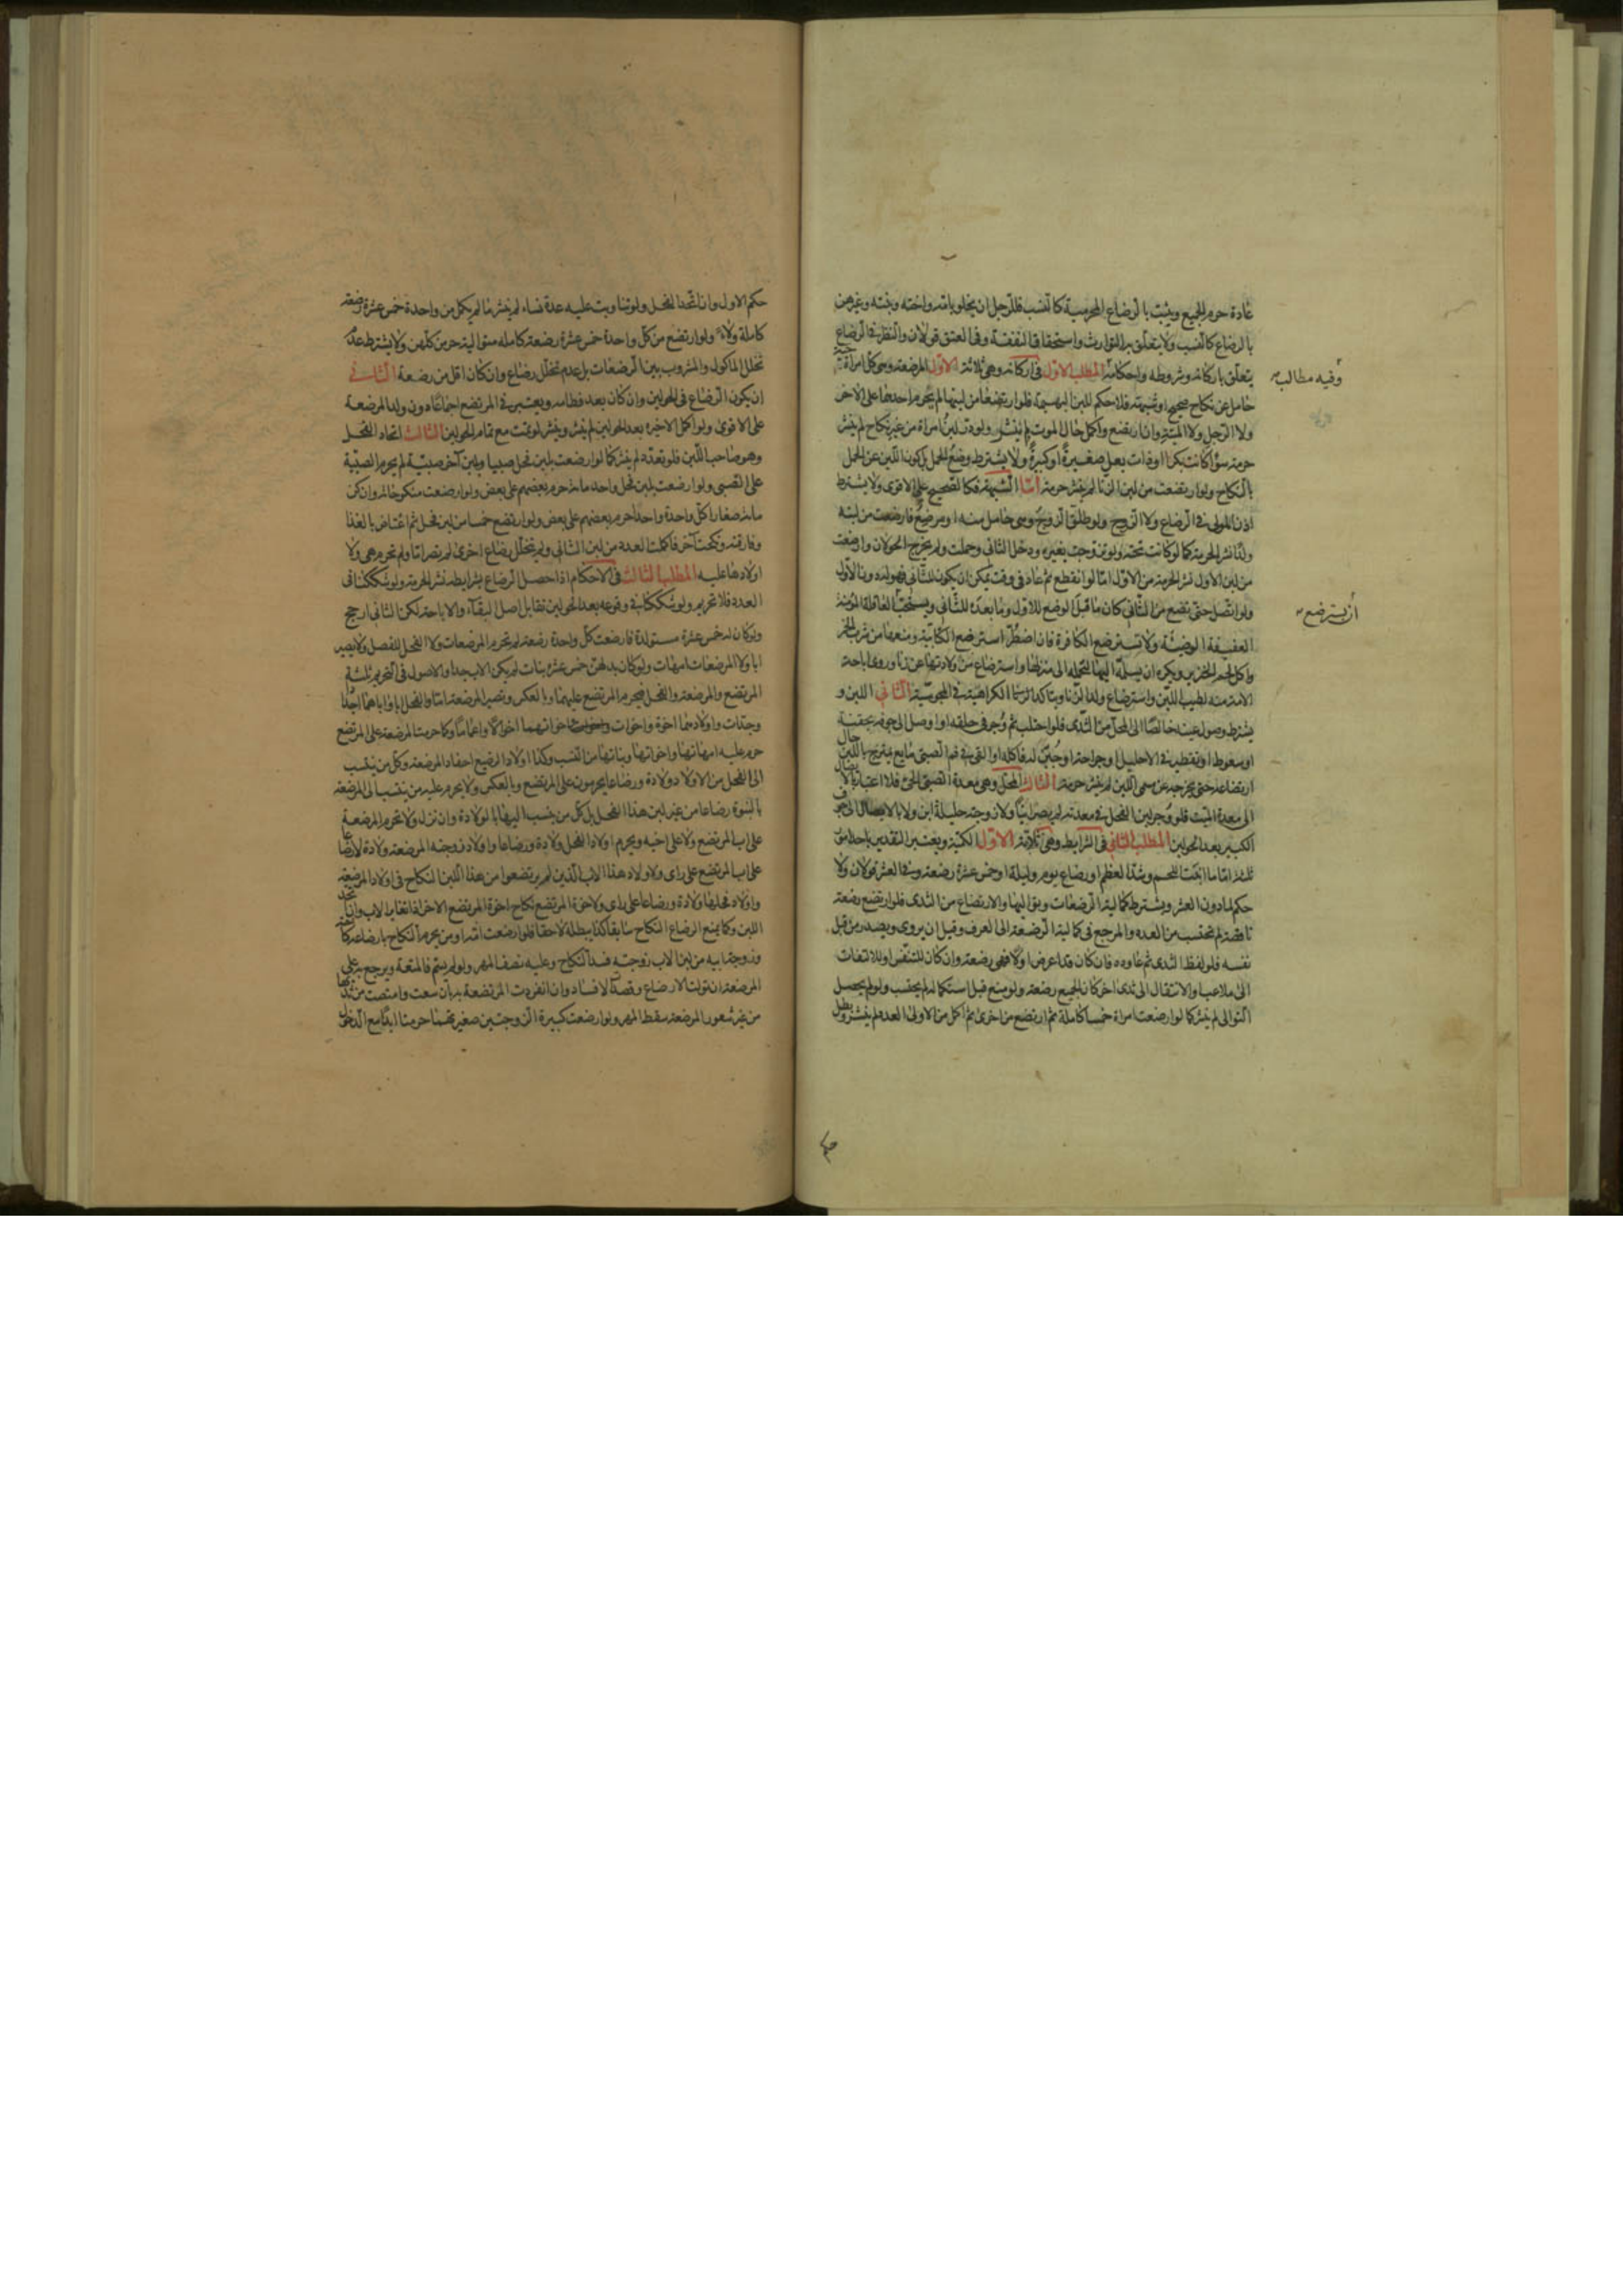 عادة حرم الجميع ويثبت بالرضاع المحرمية كالنسب فللرجل ان يخلو بامه واخته وبنته وغيرهن
بالرضاع كالنسب ولا يتعلق به التوارث واستحقاق النفقة وفي العتق قولان والنظر في الرضاع
يتعلق باركانه وشروطه واحكامه المطلب الاول في اركانه وهي ثلاثة الاول المرضعة وهي كل امراة حية
وفيه مطالب
حامل عن نكاح صحيح او شبهة فلا حكم للبن البهيمة فلو ارتضعا من لبنها لم تحرم احدهما على الاخر
ولا الرجل ولا الميتة وان ارتضع واكمل حال الموت لم ينشر ولو در لبن امراة من غير نكاح لم ينشر
حرمة سواء كانت بكرا او ذات بعل صغيرة او كبيرة ولا يشترط وضع الحمل بل كون اللبن عن الحمل
بالنكاح ولو ارتضعت من لبن الزنا لم ينشر حرمة اما الشبهة فكالصحيح على الاقوى ولا يشترط
اذن المولى في الرضاع ولا الزوج ولو طلق الزوج وهي حامل منه او مرضع فارضعت من لبنه
ولدا نشر الحرمة كما لو كانت تحته ولو تزوجت بغيره ودخل الثاني وحملت ولم يخرج الحولان وارضعت
من لبن الاول نشر الحرمة من الاول اما لو انقطع ثم عاد في وقت يمكن ان يكون للثاني فهو له دون الاول
ولو اتصل حتى تضع من الثاني كان ما قبل الوضع للاول وما بعده للثاني ويستحب العاقلة المؤمنة
ان يسترضع
العفيفة الوضيئة ولا تسترضع الكافرة فان اضطر استرضع الكتابية ومنعها من شرب الخمر
واكل لحم الخنزير ويكره ان يسلمه اليها لتحمله الى منزلها واسترضاع من ولادتها عن زنا وروي اباحة
الامة منه لطيب اللبن واسترضاع ولد الزنا ويتاكد الكراهية في المجوسية الثاني اللبن و
يشترط وصول عينه خالصا الى المحل من الثدي فلو احتلب ثم وجر في حلقه او اوصل الى جوفه بحقنة
او سعوط او تقطير في الاحليل او جراحة او جبن له فاكله او القي في فم الصبي مايع يمتزج باللبن حال
ارتضاعه حتى يخرجه عن مسمى اللبن لم ينشر حرمة الثالث المحل وهي معدة الصبي الحي فلا اعتبار بالايصال
الى معدة الميت فلو وجر لبن الفحل في معدته لم يصر ابنا ولا زوجته حليلة ابن ولا بالايصال الى جوف
الكبير بعد الحولين المطلب الثاني في الشرايط وهي ثلاثة الاول الكمية ويعتبر التقدير باحد امور
ثلثة اما ما انبت اللحم وشد العظم او رضاع يوم وليلة او خمس عشرة رضعة وفي العشر قولان ولا
حكم لما دون العشر ويشترط كمالية الرضعات وتواليها والارتضاع من الثدي فلو ارتضع رضعة
ناقصة لم تحتسب من العدد والمرجع في كمالية الرضعة الى العرف وقيل ان يروى ويصدر من قبل
نفسه فلو لفظ الثدي ثم عاوده فان كان قد اعرض اولا فهي رضعة وان كان للتنفس او للالتفات
الى ملاعب او الانتقال الى ثدي اخر كان الجميع رضعة ولو منع قبل استكماله لم يحتسب ولو لم يحصل
التوالي لم ينشر كما لو ارضعت امراة خمسا كاملة ثم ارتضع من اخرى ثم اكمل من الاولى العدد لم ينشر وبطل
حكم الاول وان اتحد الفحل ولو تناوبت عليه عدة نساء لم ينشر ما لم يكمل من واحدة خمس عشرة رضعة
كاملة ولاء ولو ارتضع من كل واحدة خمس عشرة رضعة كاملة متوالية حرمن كلهن ولا يشترط عدم
تخلل الماكول والمشروب بين الرضعات بل عدم تخلل رضاع وان كان اقل من رضعة الثاني
ان يكون الرضاع في الحولين وان كان بعد فطامه ويعتبر في المرتضع اجماعا دون ولد المرضعة
على الاقوى ولو اكمل الاخيرة بعد الحولين لم ينشر وينشر لو تمت مع تمام الحولين الثالث اتحاد الفحل
وهو صاحب اللبن فلو تعدد لم ينشر كما لو ارضعت بلبن فحل صبيا وبلبن آخر صبية لم يحرم الصبية
على الصبي ولو ارضعت بلبن فحل واحد ماية حرم بعضهم على بعض ولو ارضعت منكوحاته وان كن
ماية صغارا كل واحدة واحدا حرم بعضهم على بعض ولو ارتضع خمسا من لبن فحل ثم اعتاض بالغذا
وفارقته ونكحت آخر فاكملت العدد من لبن الثاني ولم يتخلل رضاع اخرى لم يصر اما ولم تحرم هي ولا
اولادها عليه المطلب الثالث في الاحكام اذا حصل الرضاع بشرايطه نشر الحرمة ولو شككنا في
العدد فلا تحريم ولو شككنا في وقوعه بعد الحولين تقابل اصل البقاء والاباحة لكن الثاني ارجح
ولو كان له خمس عشرة مستولدة فارضعت كل واحدة رضعة لم تحرم المرضعات ولا الفحل للفصل ولا يصير
ابا ولا المرضعات امهات ولو كان بدلهن خمس عشرة بنات لم يكن الاب جدا والاصول في التحريم ثلثة
المرتضع والمرضعة والفحل فيحرم المرتضع عليهما وبالعكس وتصير المرضعة اما والفحل ابا واباهما اجدادا
وجدات واولادهما اخوة واخوات واخوتهما اخوالا واعماما فكما حرمت المرضعة على المرتضع
حرم عليه امهاتها واخواتها وبناتها من النسب وكذا اولاد الرضيع احفاد المرضعة وكل من ينتسب
الى الفحل من الاولاد ولادة ورضاعا يحرمون على المرتضع وبالعكس ولا يحرم عليه من ينتسب الى المرضعة
بالبنوة رضاعا من غير لبن هذا الفحل بل كل من ينتسب اليها بالولادة وان نزل ولا تحرم المرضعة
على اب المرتضع ولا على اخيه ويحرم اولاد الفحل ولادة ورضاعا واولاد زوجته المرضعة ولادة لا رضاعا
على اب المرتضع على راي ولاولاد هذا الاب الذين لم يرتضعوا من هذا اللبن النكاح في اولاد المرضعة
واولاد فحلها ولادة ورضاعا على راي ولاخوة المرتضع نكاح اخوة المرتضع الاخر اذا تغاير الاب وان اتحد
اللبن وكما يمنع الرضاع النكاح سابقا كذا يبطله لاحقا فلو ارضعت امه او من يحرم النكاح بارضاعه
وزوجة ابيه من لبن الاب زوجته فسد النكاح وعليه نصف المهر ولو لم يسم فالمتعة ويرجع به على
المرضعة ان تولت الارضاع وقصدت الافساد وان انفردت المرتضعة به بان سعت وامتصت من ثديها
من غير شعور المرضعة سقط المهر ولو ارضعت كبيرة الزوجتين صغيرتهما حرمتا ابدا مع الدخول